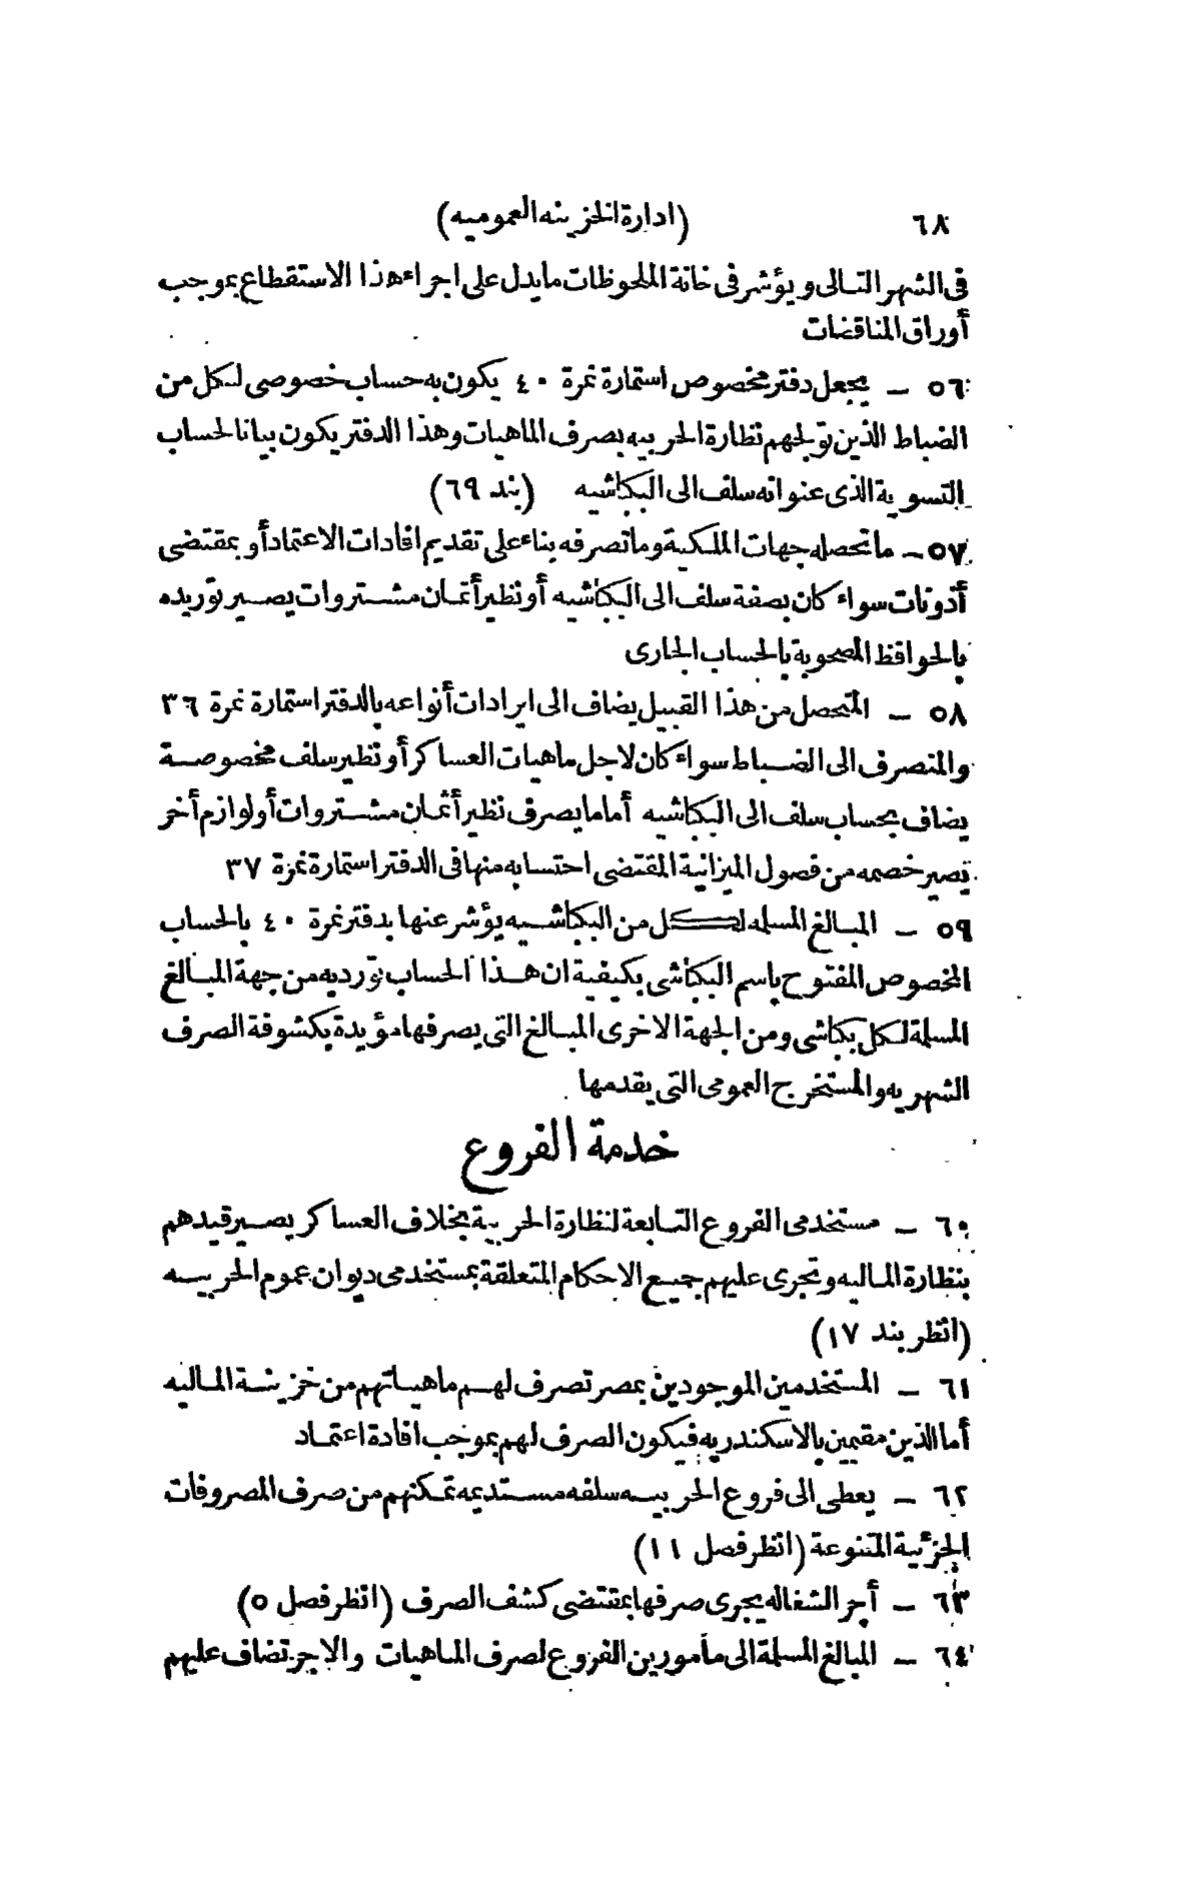 ٦٨
(ادارة الخزينه العموميه)
فى الشهر التالى ويؤشر فى خانة الملحوظات مايدل على اجراء هذا الاستقطاع بموجب
أوراق المناقضات
٥٦ – يجعل دفتر مخصوص استمارة نمرة ٤٠ يكون به حساب خصوصى لكل من
الضباط الذين توّلجهم نظارة الحربيه بصرف الماهيات وهذا الدفتر يكون بيانا لحساب
التسوية الذى عنوانه سلف الى البكباشيه (بند ٦٩)
٥٧ – ماتحصله جهات الملكية وماتصرفه بناء على تقديم افادات الاعتماد أو بمقتضى
أذونات سواء كان بصفة سلف الى البكباشيه أو نظير أثمان مشتروات يصير توريده
بالحوافظ المصحوبة بالحساب الجارى
٥٨ – المتحصل من هذا القبيل يضاف الى ايرادات أنواعه بالدفتر استمارة نمرة ٣٦
والمنصرف الى الضباط سواء كان لاجل ماهيات العساكر أو نظير سلف مخصوصة
يضاف بحساب سلف الى البكباشيه أما مايصرف نظير أثمان مشتروات أو لوازم أخر
تصير خصمه من فصول الميزانية المقتضى احتسابه منها فى الدفتر استمارة نمرة ٣٧
٥٩ – المبالغ المسلمه لكل من البكباشيه يؤشر عنها بدفتر نمرة ٤٠ بالحساب
المخصوص المفتوح باسم البكباشى بكيفية ان هذا الحساب تورّد به من جهة المبالغ
المسلمة لكل بكباشى ومن الجهة الاخرى المبالغ التى يصرفها مؤيدة بكشوفة الصرف
الشهريه والمستخرج العمومى التى يقدمها
خدمة الفروع
٦٠ – مستخدمى الفروع التابعة لنظارة الحربية بخلاف العساكر يصير قيدهم
بنظارة الماليه وتجرى عليهم جميع الاحكام المتعلقة بمستخدمى ديوان عموم الحربيه
(انظر بند ١٧)
٦١ – المستخدمين الموجودين بمصر تصرف لهم ماهياتهم من خزينة الماليه
أما الذين مقيمين بالاسكندريه فيكون الصرف لهم بموجب افادة اعتماد
٦٢ – يعطى الى فروع الحربيه سلفه مستديمه تمكنهم من صرف المصروفات
الجزئية المتنوعة (انظر فصل ١١)
٦٣ – أجر الشغاله يجرى صرفها بمقتضى كشف الصرف (انظر فصل ٥)
٦٤ – المبالغ المسلمة الى مأمورين الفروع لصرف الماهيات والاجر تضاف عليهم